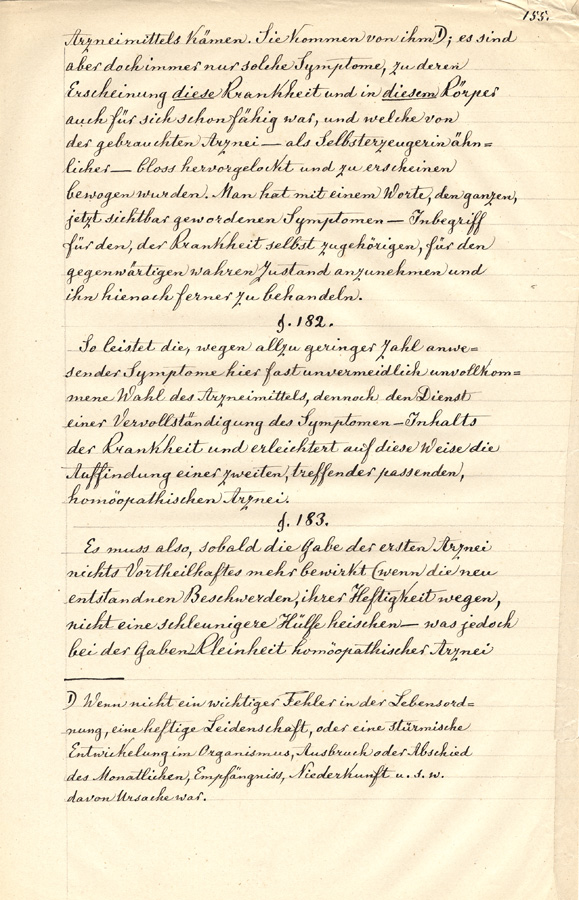 155.
Arzneimittels kämen. Sie kommen von ihm 1); es sind
aber doch immer nur solche Symptome, zu deren
Erscheinung diese Krankheit und in diesem Körper
auch für sich schon fähig war, und welche von
der gebrauchten Arznei — als Selbsterzeugerin ähn=
licher — bloss hervorgelockt und zu erscheinen
bewogen wurden. Man hat mit einem Worte, den ganzen,
jetzt sichtbar gewordenen Symptomen — Inbegriff
für den, der Krankheit selbst zugehörigen, für den
gegenwärtigen wahren Zustand anzunehmen und
ihn hienach ferner zu behandeln.
§. 182.
So leistet die, wegen allzu geringer Zahl anwe=
sender Symptome hier fast unvermeidlich unvollkom=
mene Wahl des Arzneimittels, dennoch den Dienst
einer Vervollständigung des Symptomen-Inhalts
der Krankheit und erleichtert auf diese Weise die
Auffindung einer zweiten, treffender passenden,
homöopathischen Arznei.
§. 183.
Es muss also, sobald die Gabe der ersten Arznei
nichts Vortheilhaftes mehr bewirkt (wenn die neu
entstandnen Beschwerden, ihrer Heftigkeit wegen,
nicht eine schleunigere Hülfe heischen — was jedoch
bei der Gaben Kleinheit homöopathischer Arznei
1) Wenn nicht ein wichtiger Fehler in der Lebensord=
nung, eine heftige Leidenschaft, oder eine stürmische
Entwickelung im Organismus, Ausbruch oder Abschied
des Monatlichen, Empfängniss, Niederkunft u. s. w.
davon Ursache war.